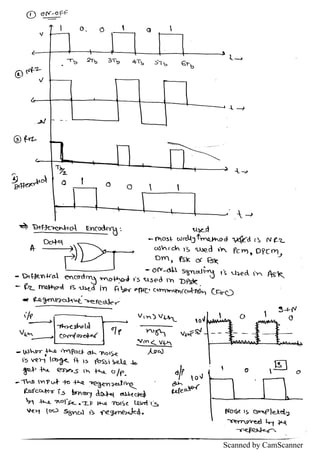 ① ON-OFF
V
1 0 0 1 0 1
Tb 2Tb 3Tb 4Tb 5Tb 6Tb t→
② NRZ
V
t→
③ RZ
Tb/2
t→
4) Differential
0 1 0 0 1 1
t→
⇒ Differential Encoding:
Data
A
used
- most widly method used is NRZ
which is used in PCM, DPCM,
DM, PSK or FSK
- ON-OFF signaling is used in ASK
- Differntial encoding method is used in DPSK.
- RZ method is used in fiber optic communication (FOC)
* Regenerative repeater
i/p
Vth
Threshold
comparator
o/p
Vin > Vth
high
Vin < Vth
low
S+N
10V
1 0 1 0
- When the impact of noise
is very large it is possible to
get the errors in the o/p.
- The input to the regenerative
Repeater is binary data affected
by the noise. If the noise level is
very low signal is regenerated.
o/p
of
Repeater
10V
S
1 0 1 0
Noise is completely
removed by the
repeater
Scanned by CamScanner